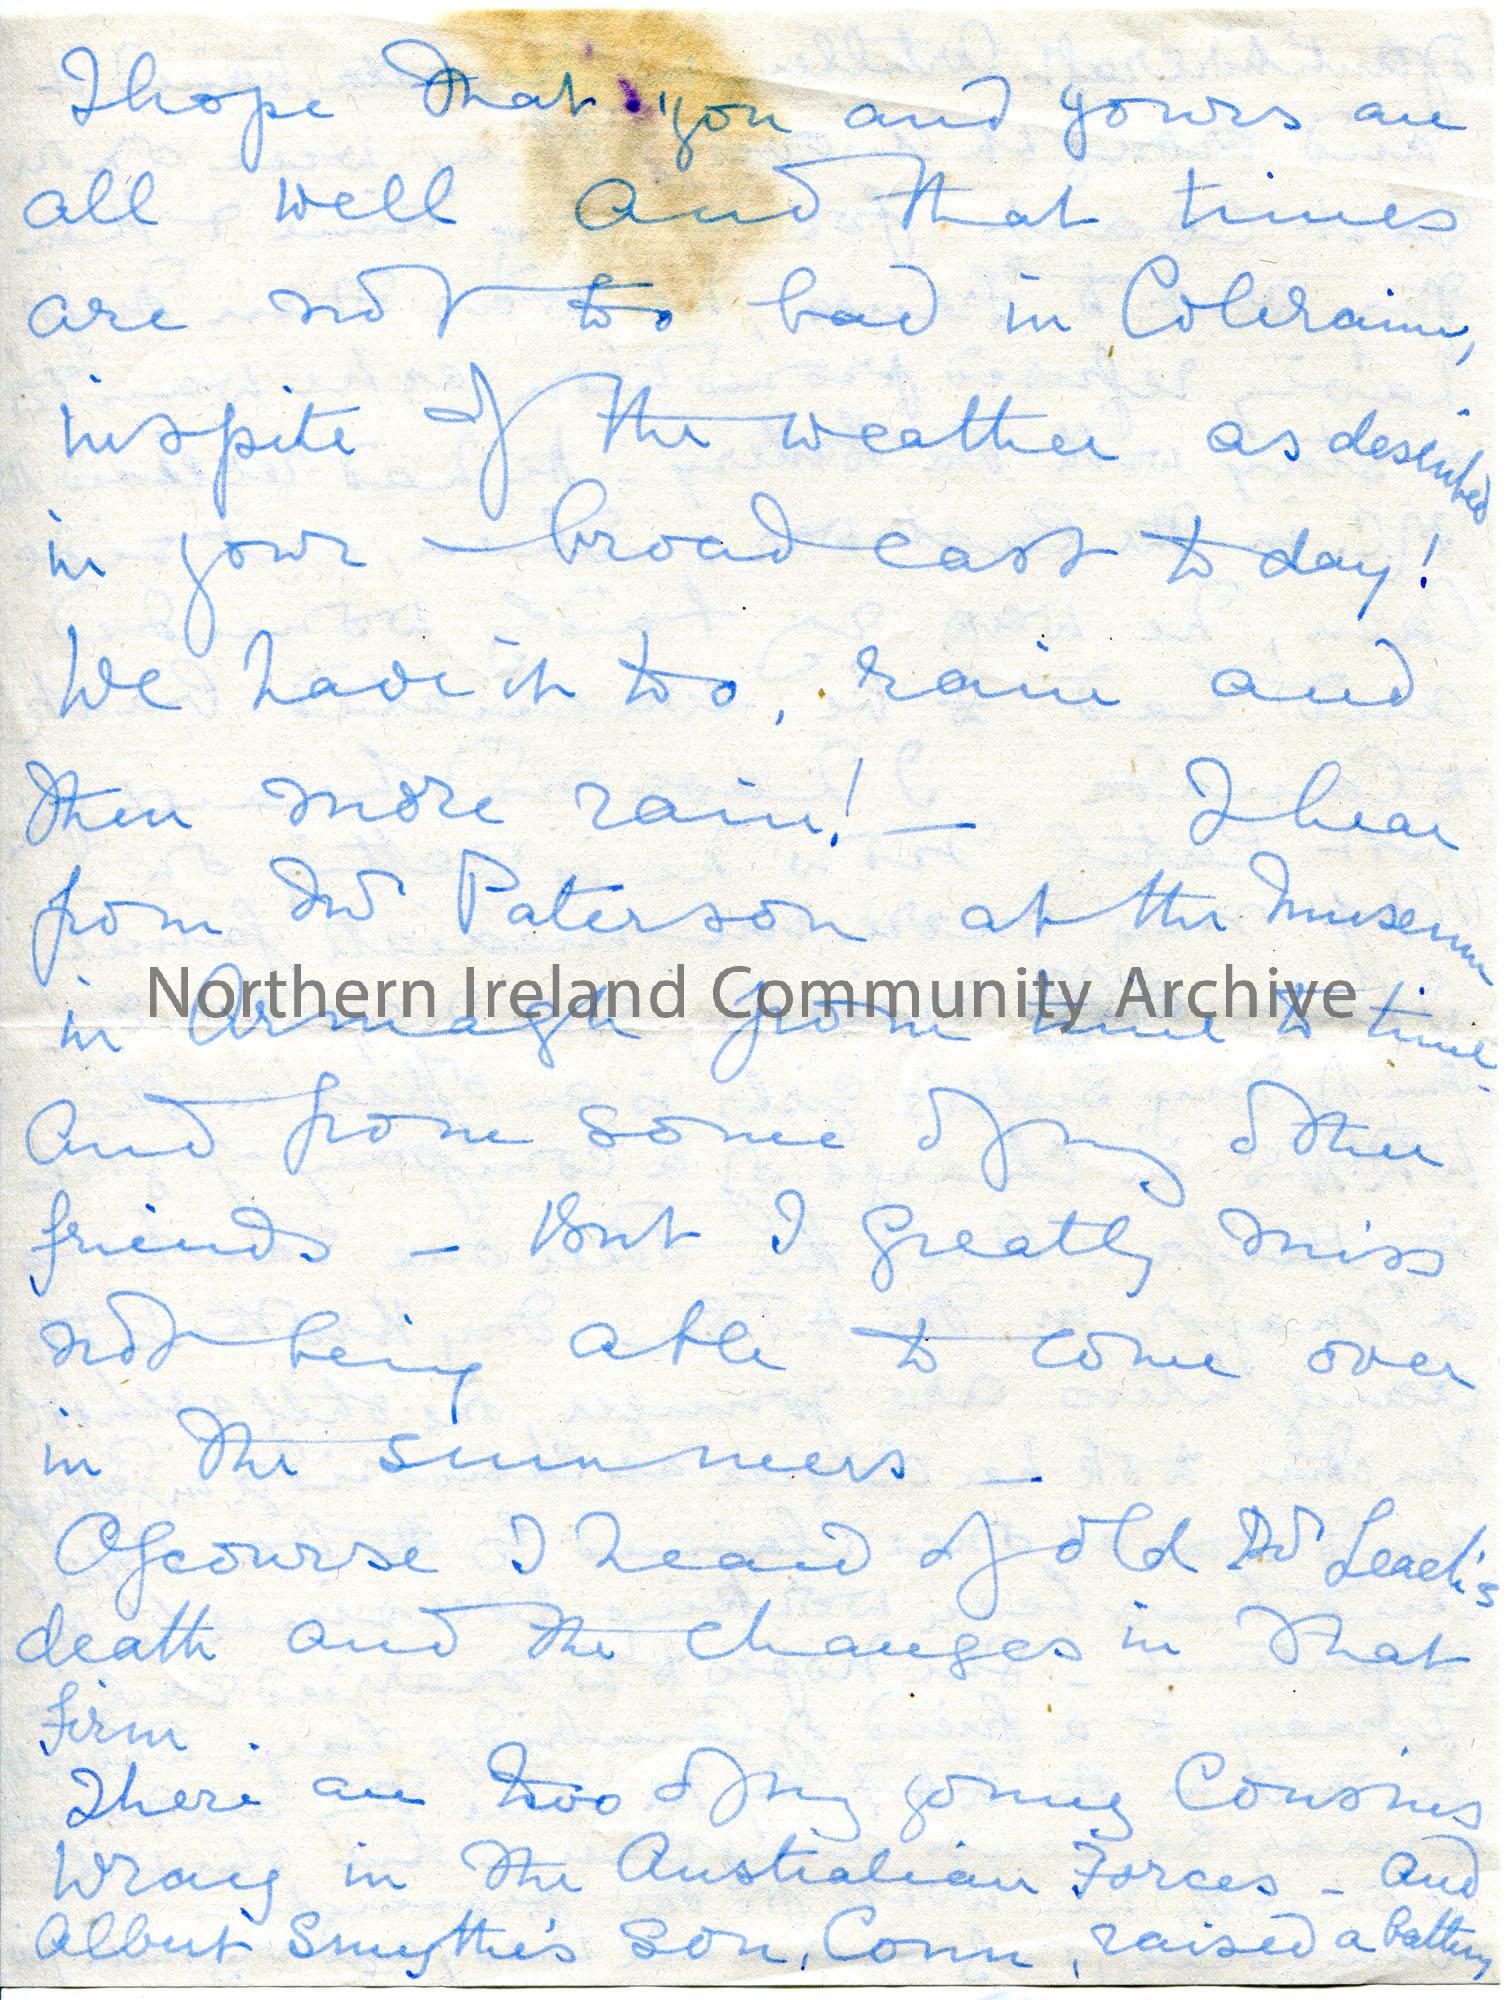 I hope that you and yours are
all well and that times
are not too bad in Coleraine,
inspite of the weather as described
in your broadcast to day!
We have it too, rain and
then more rain! — I hear
from Mr Paterson at the Museum
in Armagh from time to time -
Northern Ireland Community Archive
and from some of my other
friends - But I greatly miss
not being able to come over
in the summers —
Of course I heard of old Mr Leech's
death and the changes in that
Firm.
There are two of my young Cousins
Wray in the Australian Forces - and
Albert Smythe's son, Conn, raised a battery